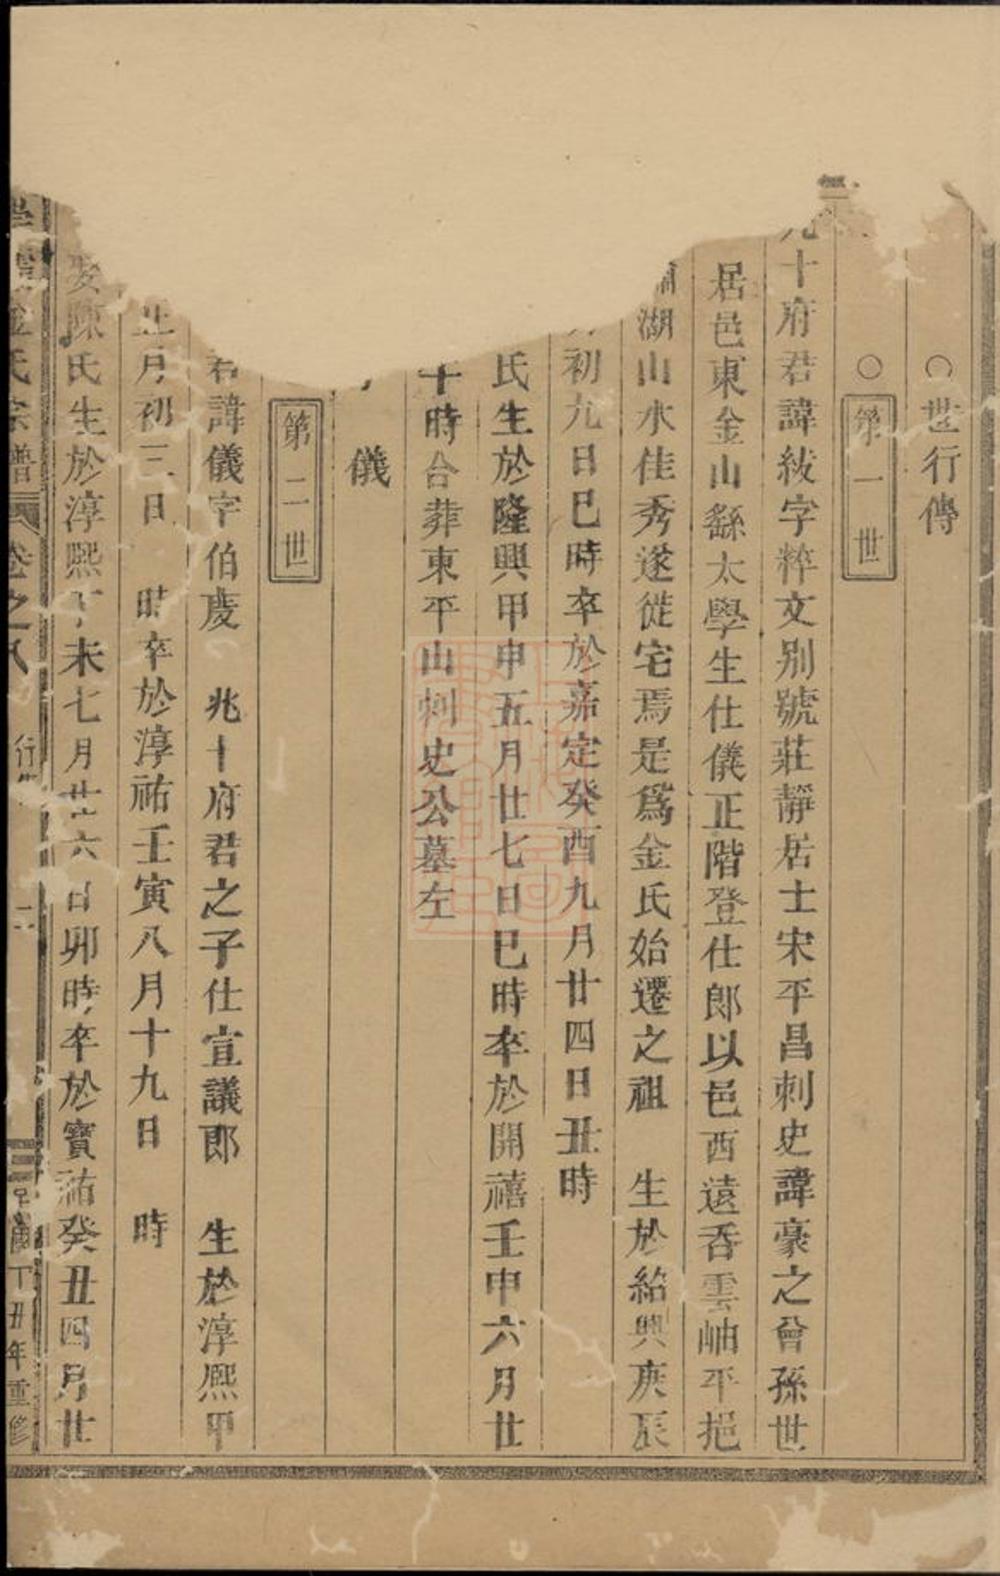 ○世行傳
○第一世
九十府君諱紱字粹文别號莊靜居士宋平昌刺史諱豪之曾孫世
居邑東金山繇太學生仕儀正階登仕郎以邑西遠吞雲岫平挹
湖山水佳秀遂徙宅焉是爲金氏始遷之祖 生於紹興庚辰
初九日巳時卒於嘉定癸酉九月廿四日丑時
氏生於隆興甲申五月廿七日巳時卒於開禧壬申六月廿
十時合葬東平山刺史公墓左
儀
第二世
君諱儀字伯慶 兆十府君之子仕宣議郎 生於淳熙甲
正月初三日 時卒於淳祐壬寅八月十九日 時
安陳氏生於淳熙丁未七月廿六日卯時卒於寳祐癸丑四月廿
金氏宗譜 卷之八 行 二 丁丑年重修